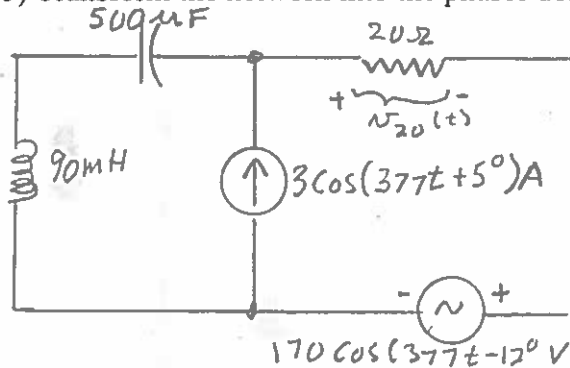 500 μF
20Ω
+ -
v₂₀(t)
90mH
3cos(377t+5°)A
- ~ +
170 cos(377t-12° V